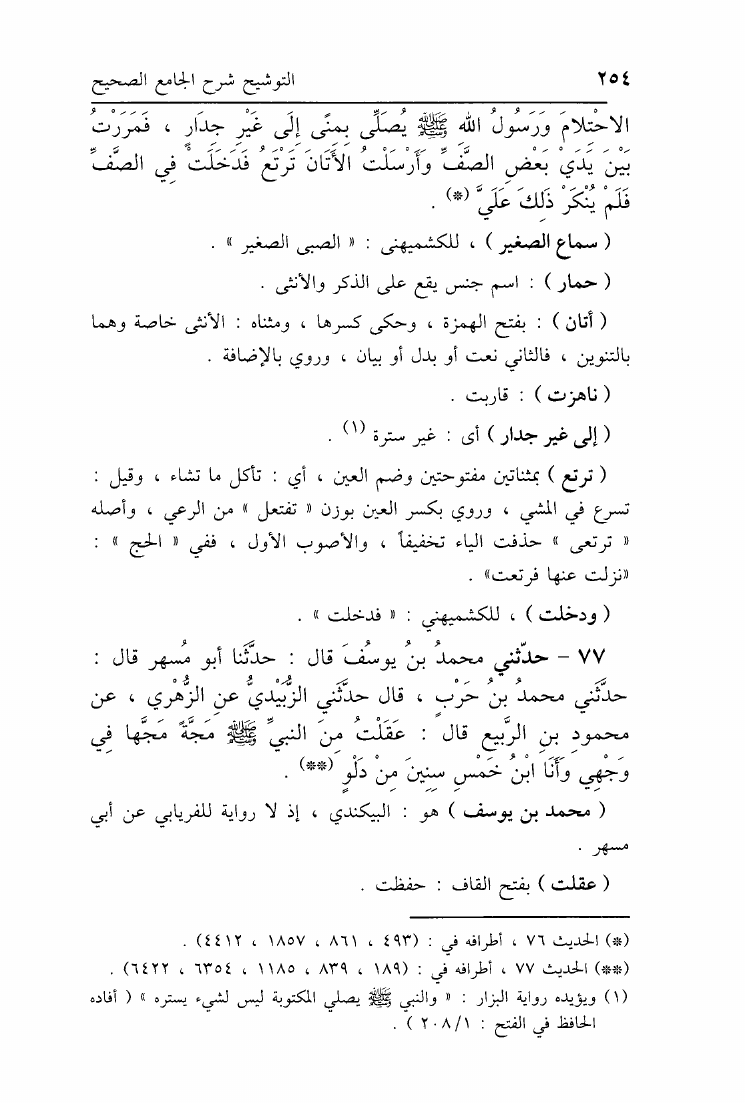 ٢٥٤ التوشيح شرح الجامع الصحيح
الاحْتِلامَ وَرَسُولُ اللهِ ﷺ يُصَلِّي بِمِنًى إِلَى غَيْرِ جِدَارٍ ، فَمَرَرْتُ
بَيْنَ يَدَيْ بَعْضِ الصَّفِّ وَأَرْسَلْتُ الأَتَانَ تَرْتَعُ فَدَخَلَتْ فِي الصَّفِّ
فَلَمْ يُنْكَرْ ذَلِكَ عَلَيَّ (*) .
( سماع الصغير ) ، للكشميهنى : « الصبى الصغير » .
( حمار ) : اسم جنس يقع على الذكر والأنثى .
( أتان ) : بفتح الهمزة ، وحكى كسرها ، ومثناه : الأنثى خاصة وهما
بالتنوين ، فالثاني نعت أو بدل أو بيان ، وروي بالإضافة .
( ناهزت ) : قاربت .
( إلى غير جدار ) أى : غير سترة (١) .
( ترتع ) بمثناتين مفتوحتين وضم العين ، أي : تأكل ما تشاء ، وقيل :
تسرع في المشي ، وروي بكسر العين بوزن « تفتعل » من الرعي ، وأصله
« ترتعى » حذفت الياء تخفيفاً ، والأصوب الأول ، ففي « الحج » :
«نزلت عنها فرتعت» .
( ودخلت ) ، للكشميهني : « فدخلت » .
٧٧ – حدّثني محمدُ بنُ يوسُفَ قال : حدَّثَنا أبو مُسهر قال :
حدَّثَني محمدُ بنُ حَرْبٍ ، قال حدَّثَني الزُّبَيْديُّ عنِ الزُّهْري ، عن
محمودِ بنِ الرَّبيع قال : عَقَلْتُ مِنَ النبيِّ ﷺ مَجَّةً مَجَّها فِي
وَجْهِي وَأَنَا ابْنُ خَمْسِ سِنِينَ مِنْ دَلْوٍ (**) .
( محمد بن يوسف ) هو : البيكندي ، إذ لا رواية للفريابي عن أبي
مسهر .
( عقلت ) بفتح القاف : حفظت .
(*) الحديث ٧٦ ، أطرافه في : (٤٩٣ ، ٨٦١ ، ١٨٥٧ ، ٤٤١٢) .
(**) الحديث ٧٧ ، أطرافه في : (١٨٩ ، ٨٣٩ ، ١١٨٥ ، ٦٣٥٤ ، ٦٤٢٢) .
(١) ويؤيده رواية البزار : « والنبي ﷺ يصلي المكتوبة ليس لشيء يستره » ( أفاده
الحافظ في الفتح : ٢٠٨/١ ) .